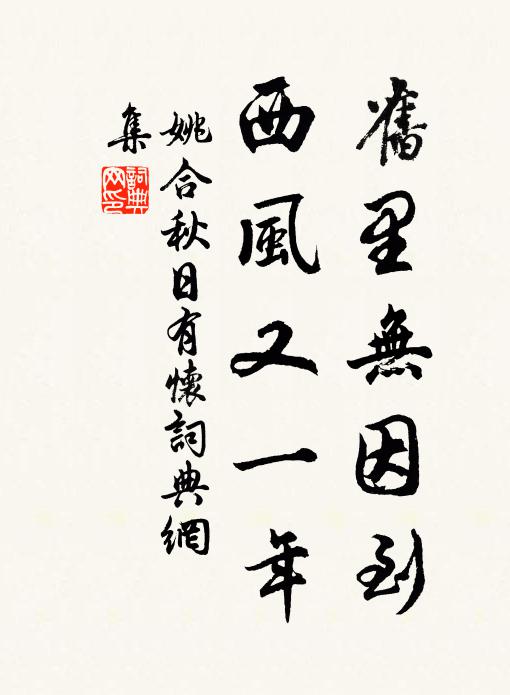 舊里無因到
西風又一年
姚合秋日有懷詞典網
集
詞典
网印